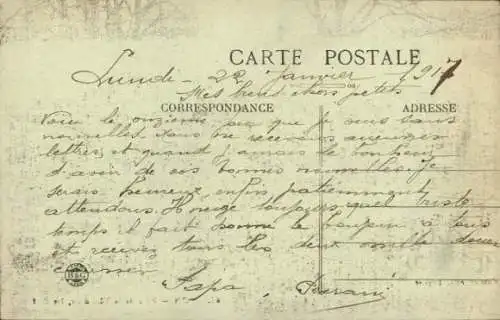 CARTE POSTALE
Lundi - 22 Janvier 1917
Mes biens chers petits
CORRESPONDANCE ADRESSE
Voici le onzième jour que je suis sans
nouvelles sans recevoir aucunes
lettres et quand j'aurais le bonheur
d'avoir de vos bonnes nouvelles. Je
serais heureux, enfin patiemment
attendons. Il neige toujours quel triste
temps il fait le à tous
et recevez tous les deux mille doux
Papa